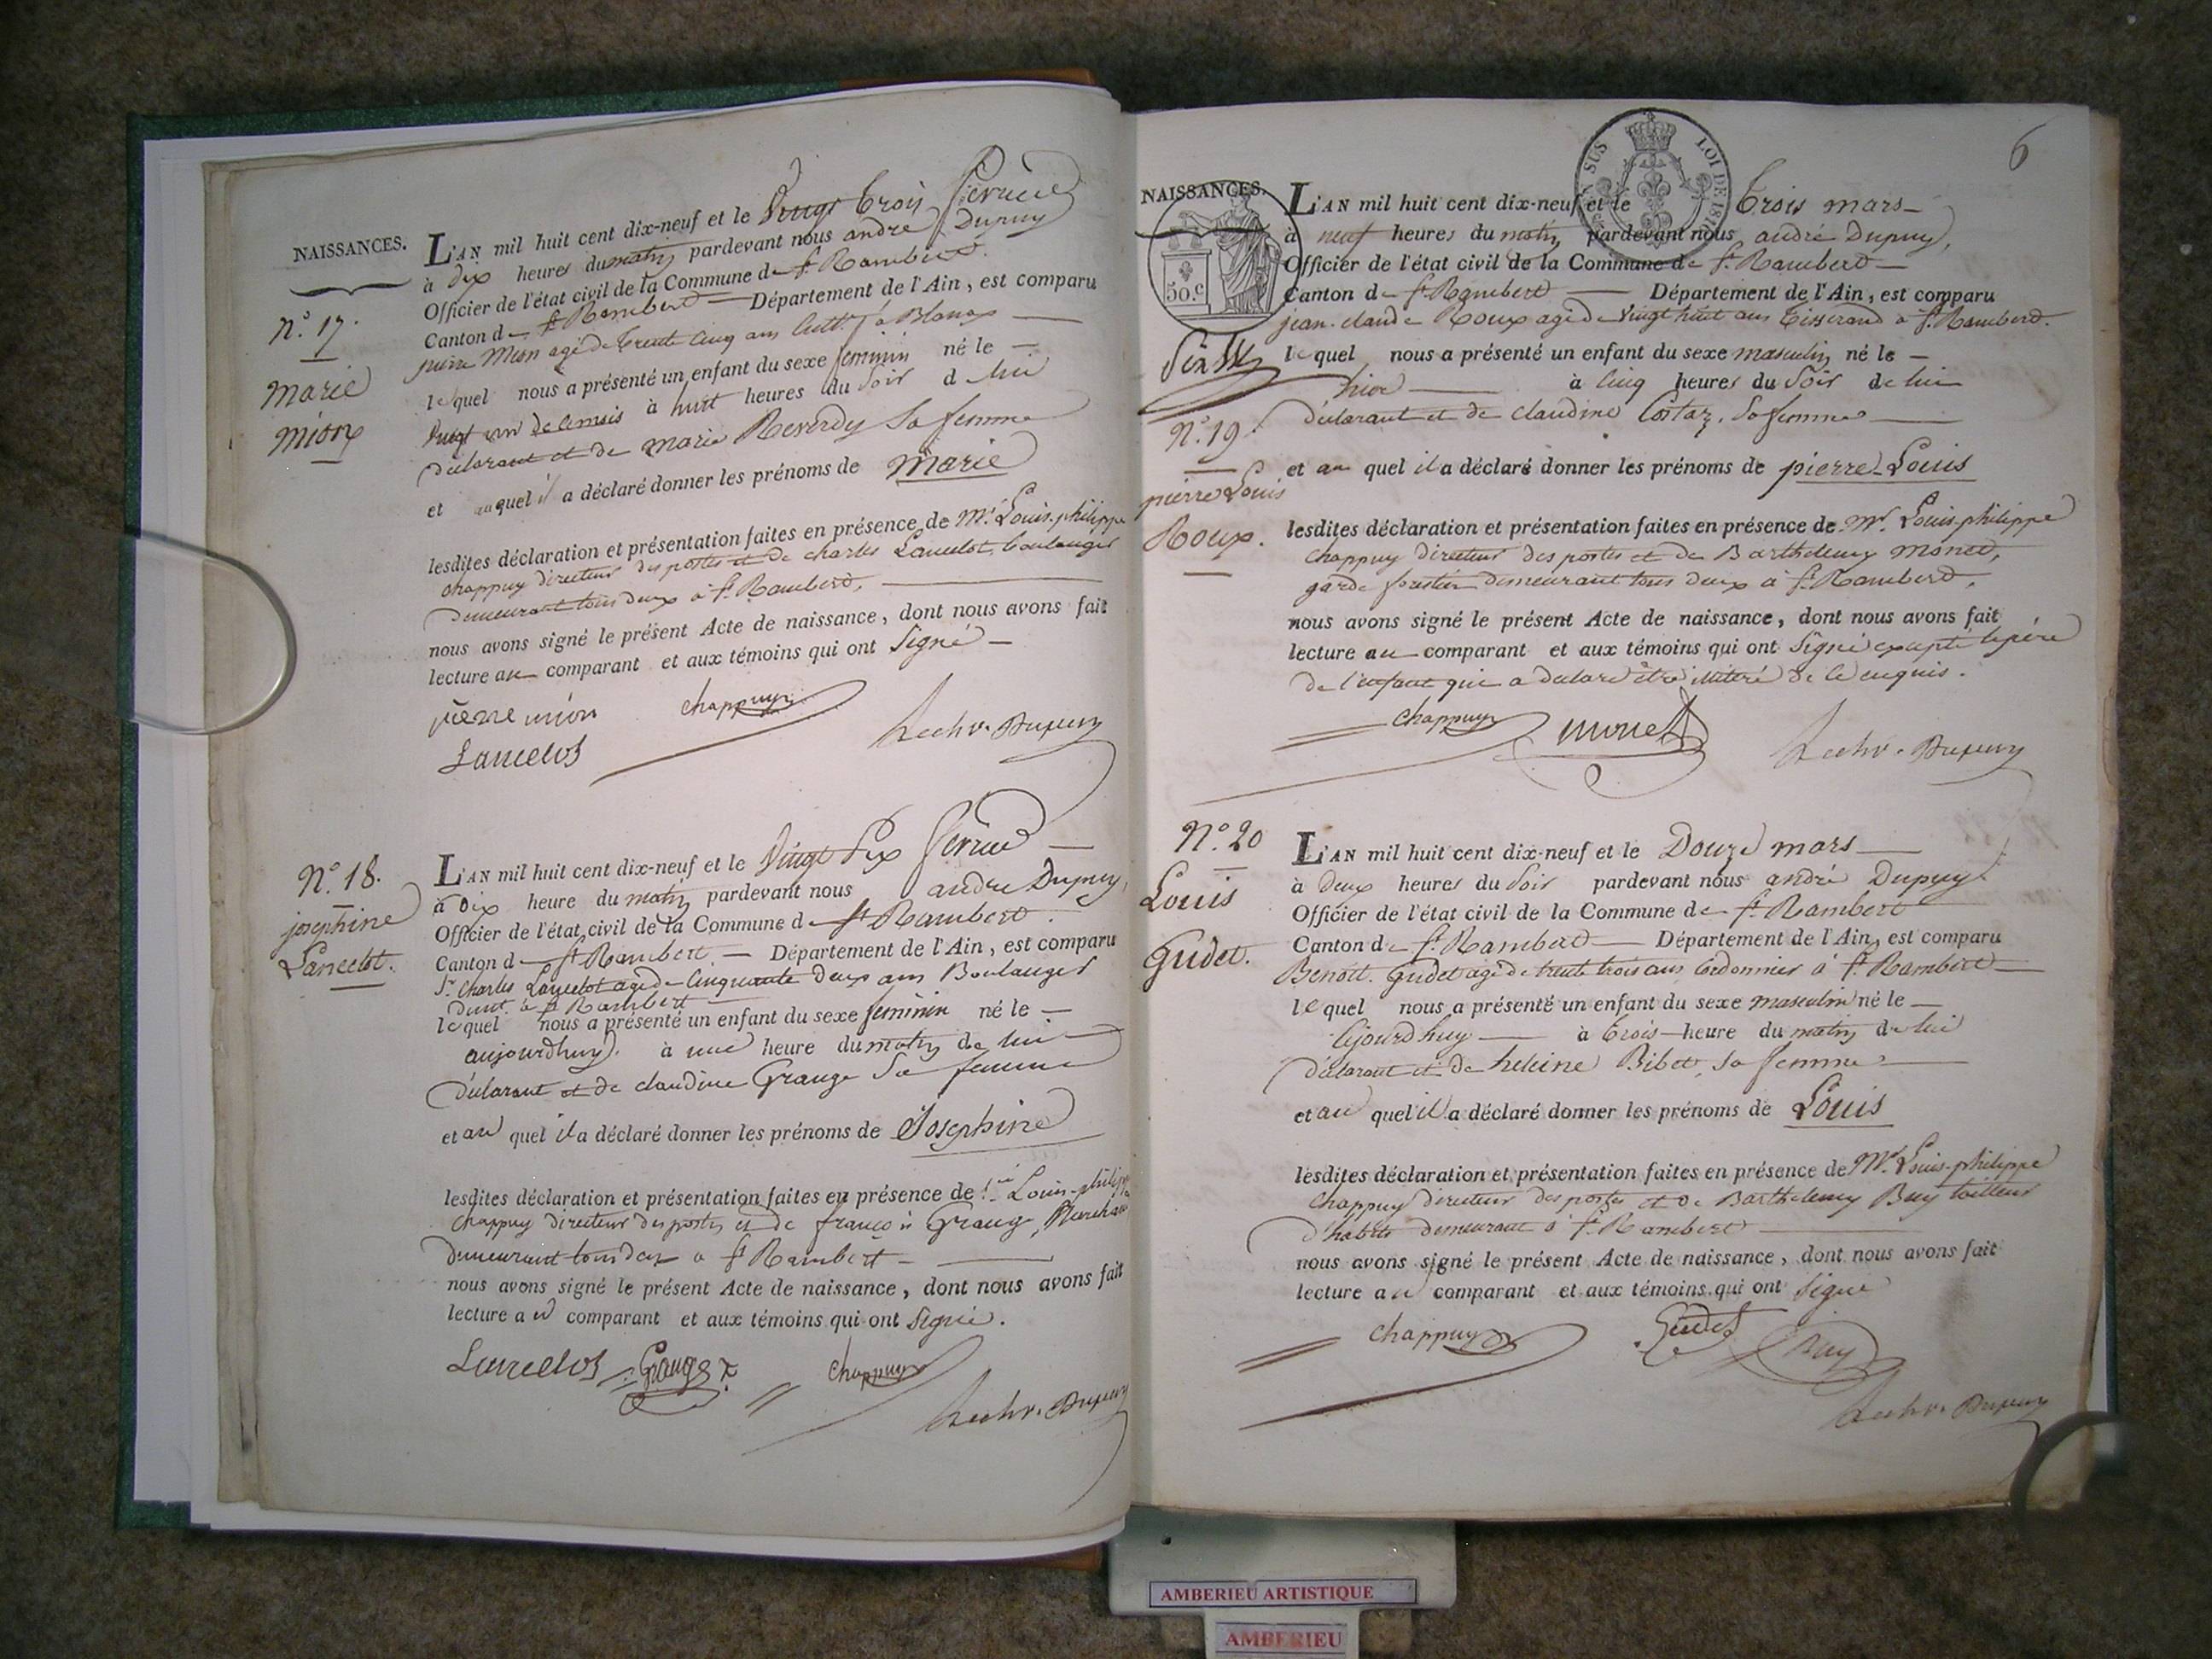 NAISSANCES.
N.º 17.
Marie
Mion
L'AN mil huit cent dix-neuf et le Vingt trois fevrier
à dix heures du matin pardevant nous andré Dupuy
Officier de l'état civil de la Commune de St. Rambert.
Canton de St. Rambert — Département de l'Ain, est comparu
pierre Mion agé de trente cinq ans cult.r à Blanas —
lequel nous a présenté un enfant du sexe feminin né le —
vingt un de ce mois à huit heures du soir de lui
déclarant et de marie Reverdy sa femme
et auquel il a déclaré donner les prénoms de Marie
lesdites déclaration et présentation faites en présence de Mr. Louis-philippe
chappuy directeur des postes et de charles Lancelot, boulanger
demeurant tous deux à St. Rambert,
nous avons signé le présent Acte de naissance, dont nous avons fait
lecture au comparant et aux témoins qui ont Signé —
pierre mion chappuy
Lancelot Dupuy
N.º 18.
josephine
Lancelot.
L'AN mil huit cent dix-neuf et le Vingt Six fevrier —
à dix heure du matin pardevant nous andré Dupuy,
Officier de l'état civil de la Commune de St Rambert.
Canton de St Rambert. — Département de l'Ain, est comparu
Sr. Charles Lancelot agé de Cinquante deux ans Boulanger
demt. à St Rambert —
lequel nous a présenté un enfant du sexe feminin né le —
aujourdhuy. à une heure du matin de lui
déclarant et de claudine Grange sa femme
et au quel il a déclaré donner les prénoms de Josephine
lesdites déclaration et présentation faites en présence de Louis-philippe
chappuy directeur des postes et de francois Grange, Marchand
demeurant tous deux a St Rambert —
nous avons signé le présent Acte de naissance, dont nous avons fait
lecture au comparant et aux témoins qui ont Signé.
Lancelot Grange chappuy
Dupuy
6
SUS LOI DE 181
NAISSANCES.
50.c
N.º 19.
pierre Louis
Roux.
L'AN mil huit cent dix-neuf et le trois mars —
à neuf heures du matin pardevant nous andré Dupuy,
Officier de l'état civil de la Commune de St. Rambert —
Canton de St Rambert — Département de l'Ain, est comparu
jean-claude Roux agé de vingt huit ans tisserand à St. Rambert.
lequel nous a présenté un enfant du sexe masculin né le —
hier — à cinq heures du Soir de lui
déclarant et de claudine Costaz, sa femme —
et au quel il a déclaré donner les prénoms de pierre-Louis
lesdites déclaration et présentation faites en présence de Mr. Louis-philippe
chappuy directeur des postes et de Barthelemy Monet,
garde forestier demeurant tous deux à St. Rambert,
nous avons signé le présent Acte de naissance, dont nous avons fait
lecture au comparant et aux témoins qui ont Signé excepté le père
de l'enfant qui a declaré être illitéré de ce enquis.
chappuy monet
Dupuy
N.º 20
Louis
Gudet.
L'AN mil huit cent dix-neuf et le Douze mars —
à Deux heures du Soir pardevant nous andré Dupuy
Officier de l'état civil de la Commune de St. Rambert
Canton de St. Rambert — Département de l'Ain, est comparu
Benoit Gudet agé de trente trois ans Cordonnier à St. Rambert —
lequel nous a présenté un enfant du sexe masculin né le —
Cejourdhuy — à trois heure du matin de lui
déclarant et de heleine Bibet, sa femme —
et au quel il a déclaré donner les prénoms de Louis
lesdites déclaration et présentation faites en présence de Mr. Louis-philippe
Chappuy directeur des postes et de Barthelemy Buy tailleur
d'habits demeurant à St. Rambert —
nous avons signé le présent Acte de naissance, dont nous avons fait
lecture au comparant et aux témoins qui ont Signé
chappuy Gudet Buy
Dupuy
AMBERIEU ARTISTIQUE
AMBERIEU